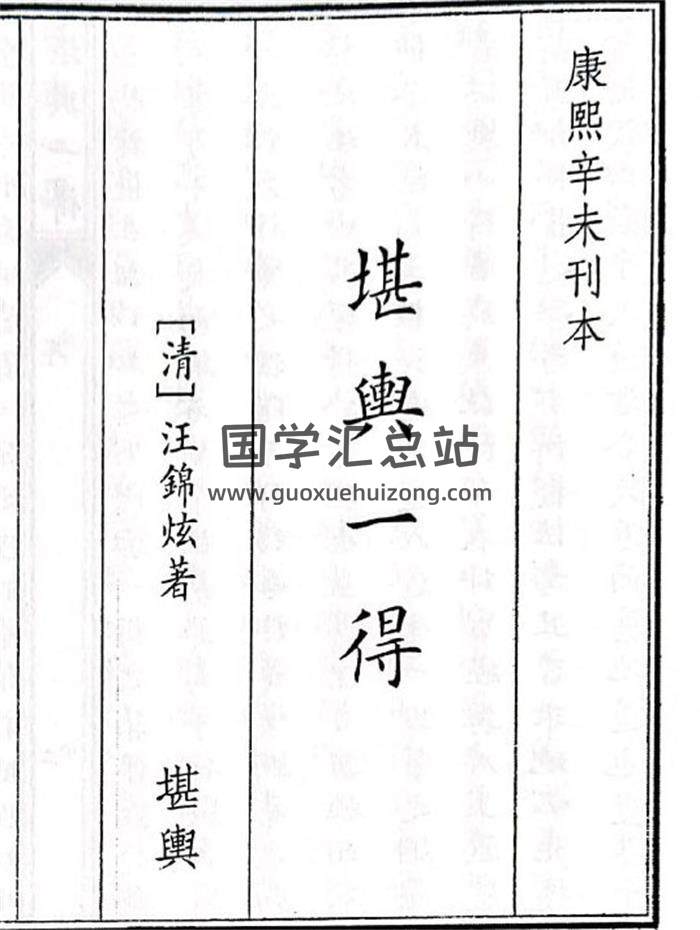 康熙辛未刊本
堪輿一得
[清]汪錦炫著
堪輿
国学汇总站
www.guoxuehuizong.com